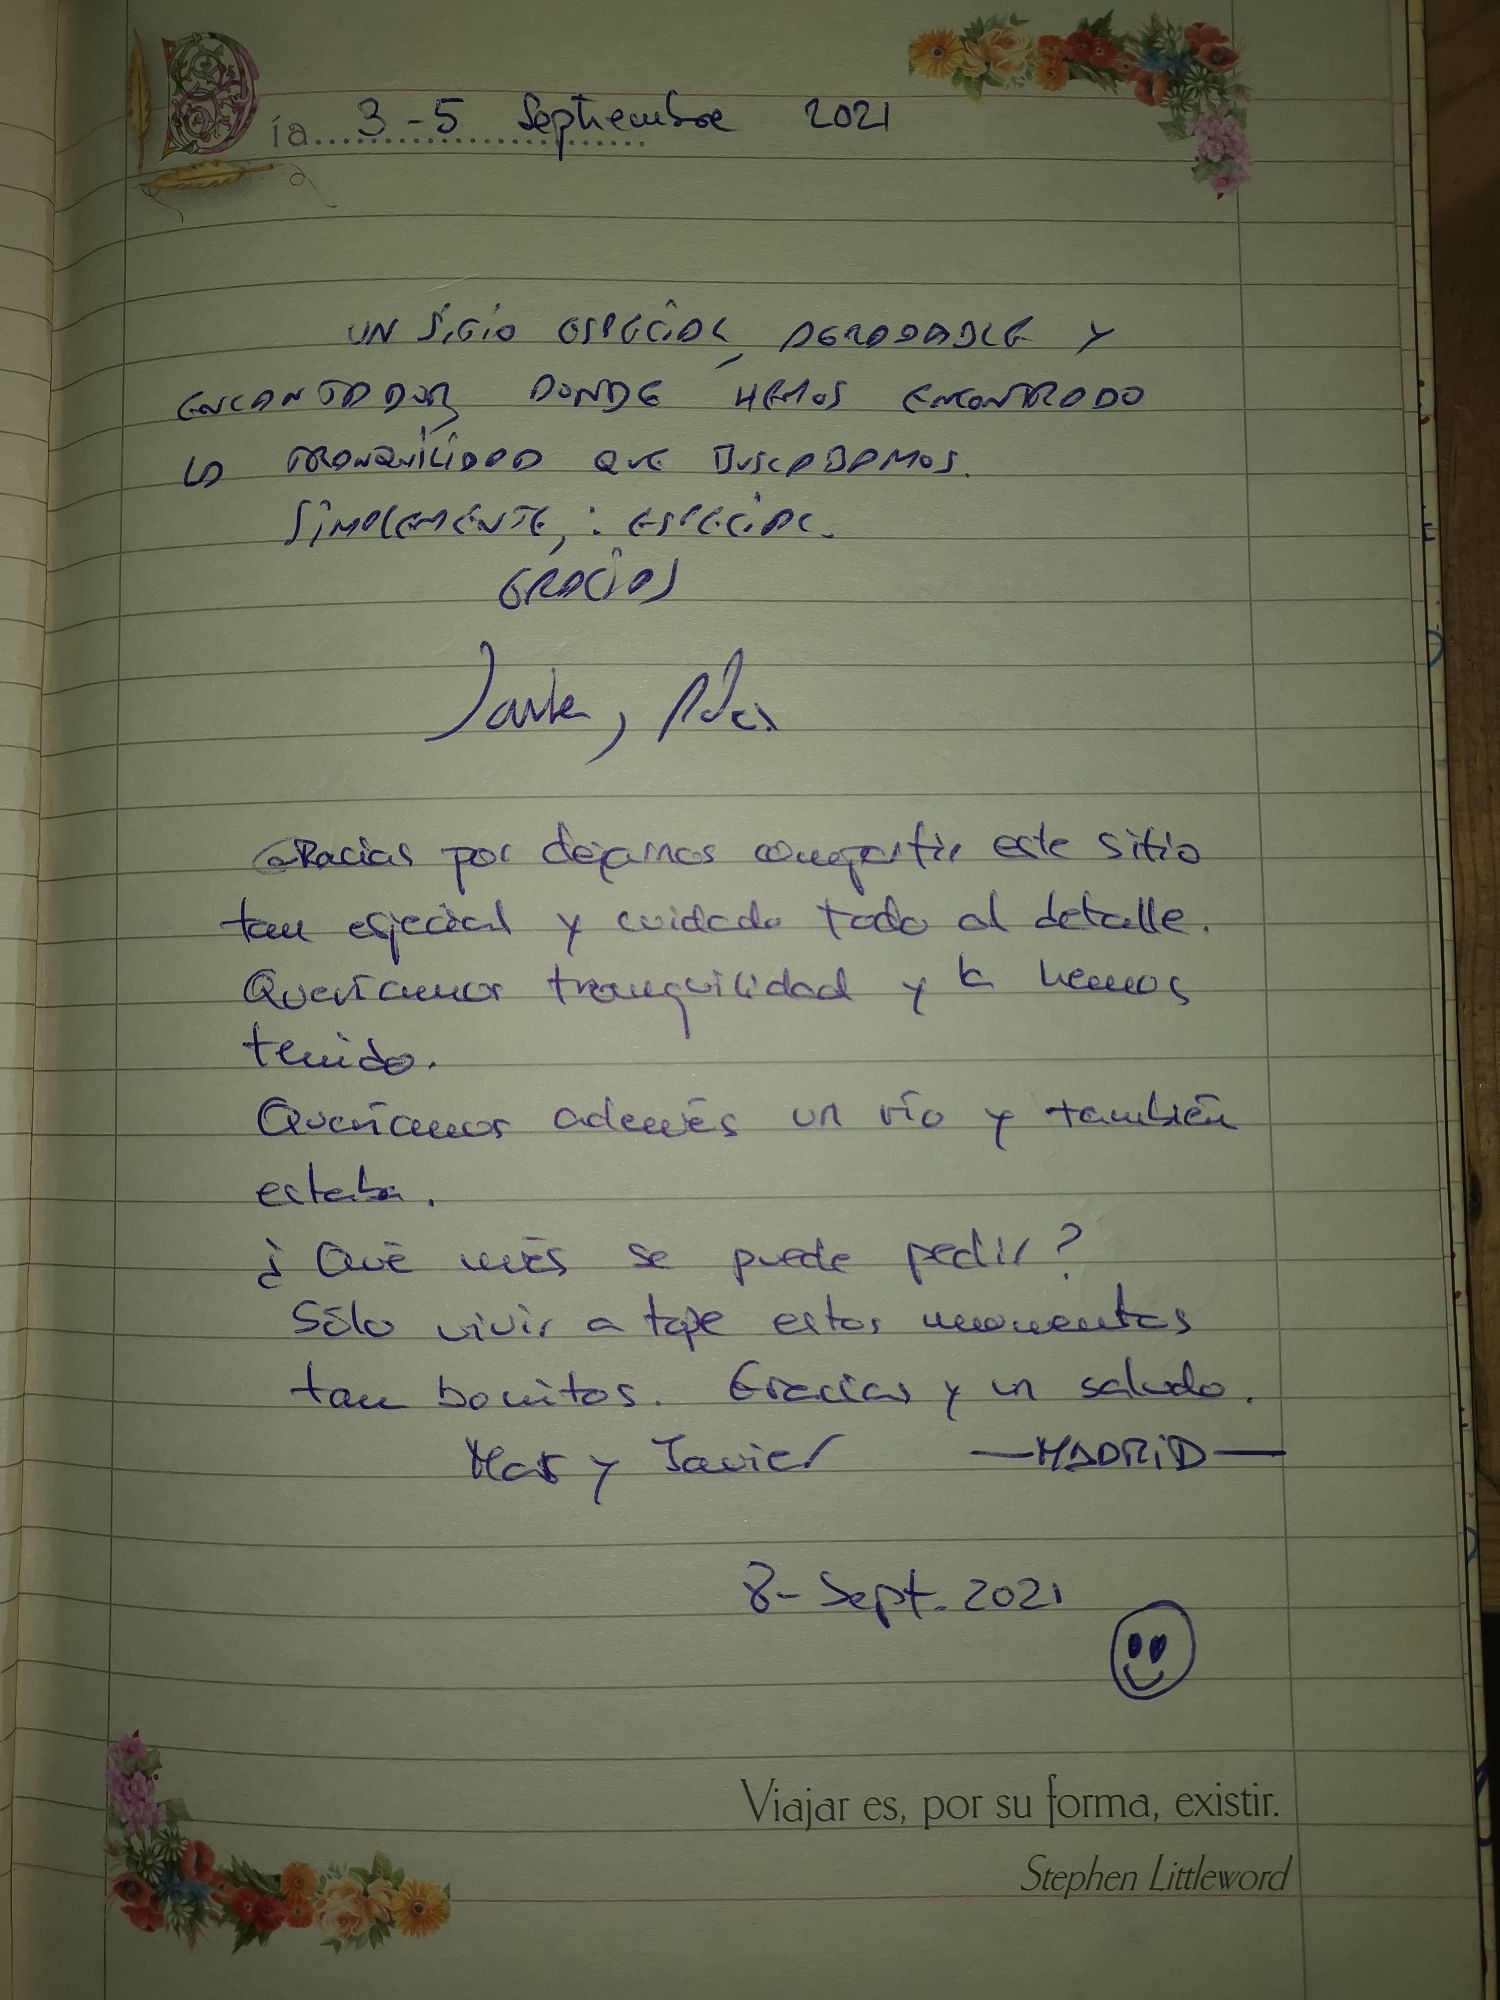 Día 3-5 Septiembre 2021
UN SITIO ESPECIAL, AGRADABLE Y
ENCANTADOR, DONDE HEMOS ENCONTRADO
LA TRANQUILIDAD QUE BUSCABAMOS.
SIMPLEMENTE, : ESPECIAL.
GRACIAS
Gracias por dejarnos compartir este sitio
tan especial y cuidado todo al detalle.
Queríamos tranquilidad y la hemos
tenido.
Queríamos además un río y también
estaba.
¿Qué más se puede pedir?
Sólo vivir a tope estos momentos
tan bonitos. Gracias y un saludo.
Mar y Javier —MADRID—
8-Sept. 2021
Viajar es, por su forma, existir.
Stephen Littleword